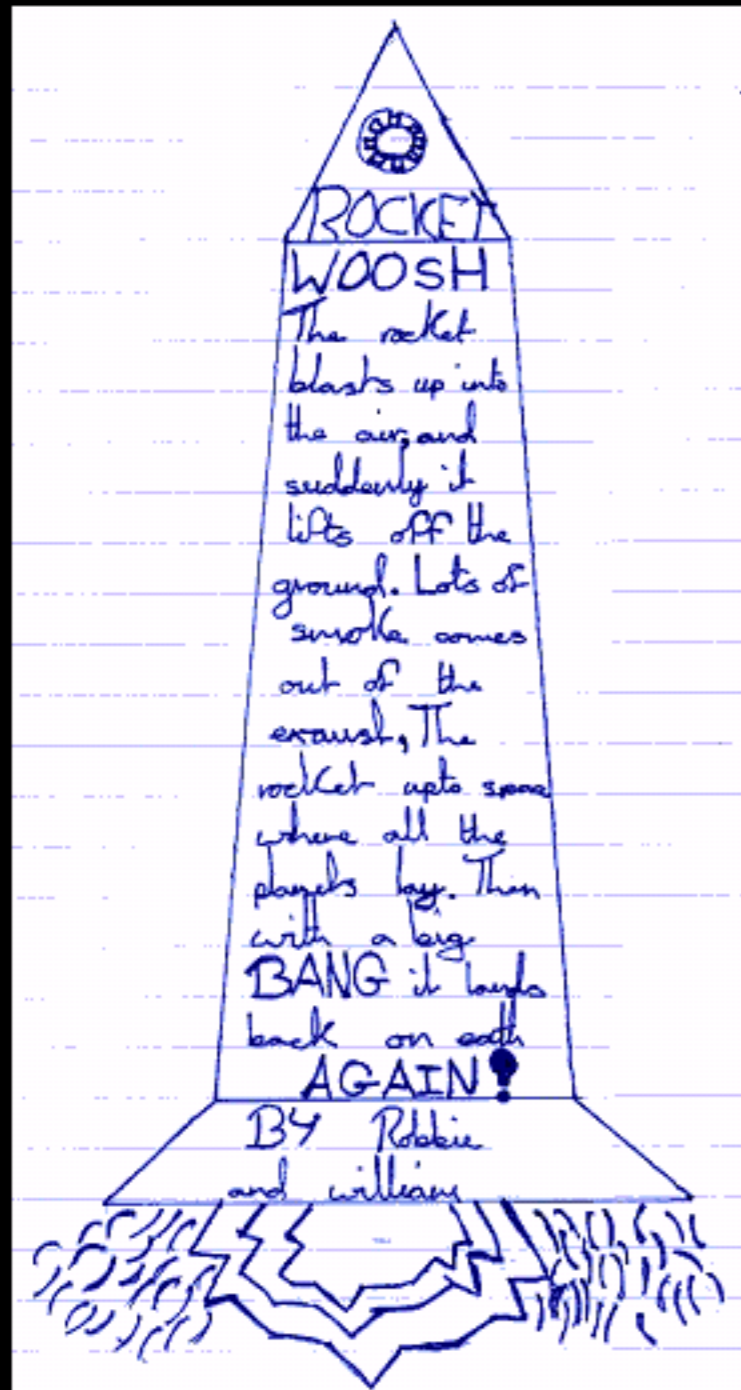 ROCKET
WOOSH
The rocket
blasts up into
the air, and
suddenly it
lifts off the
ground. Lots of
smoke comes
out of the
exaust, The
rocket upto space
where all the
planets lay. Then
with a big
BANG it lands
back on eath
AGAIN!
BY Robbie
and william